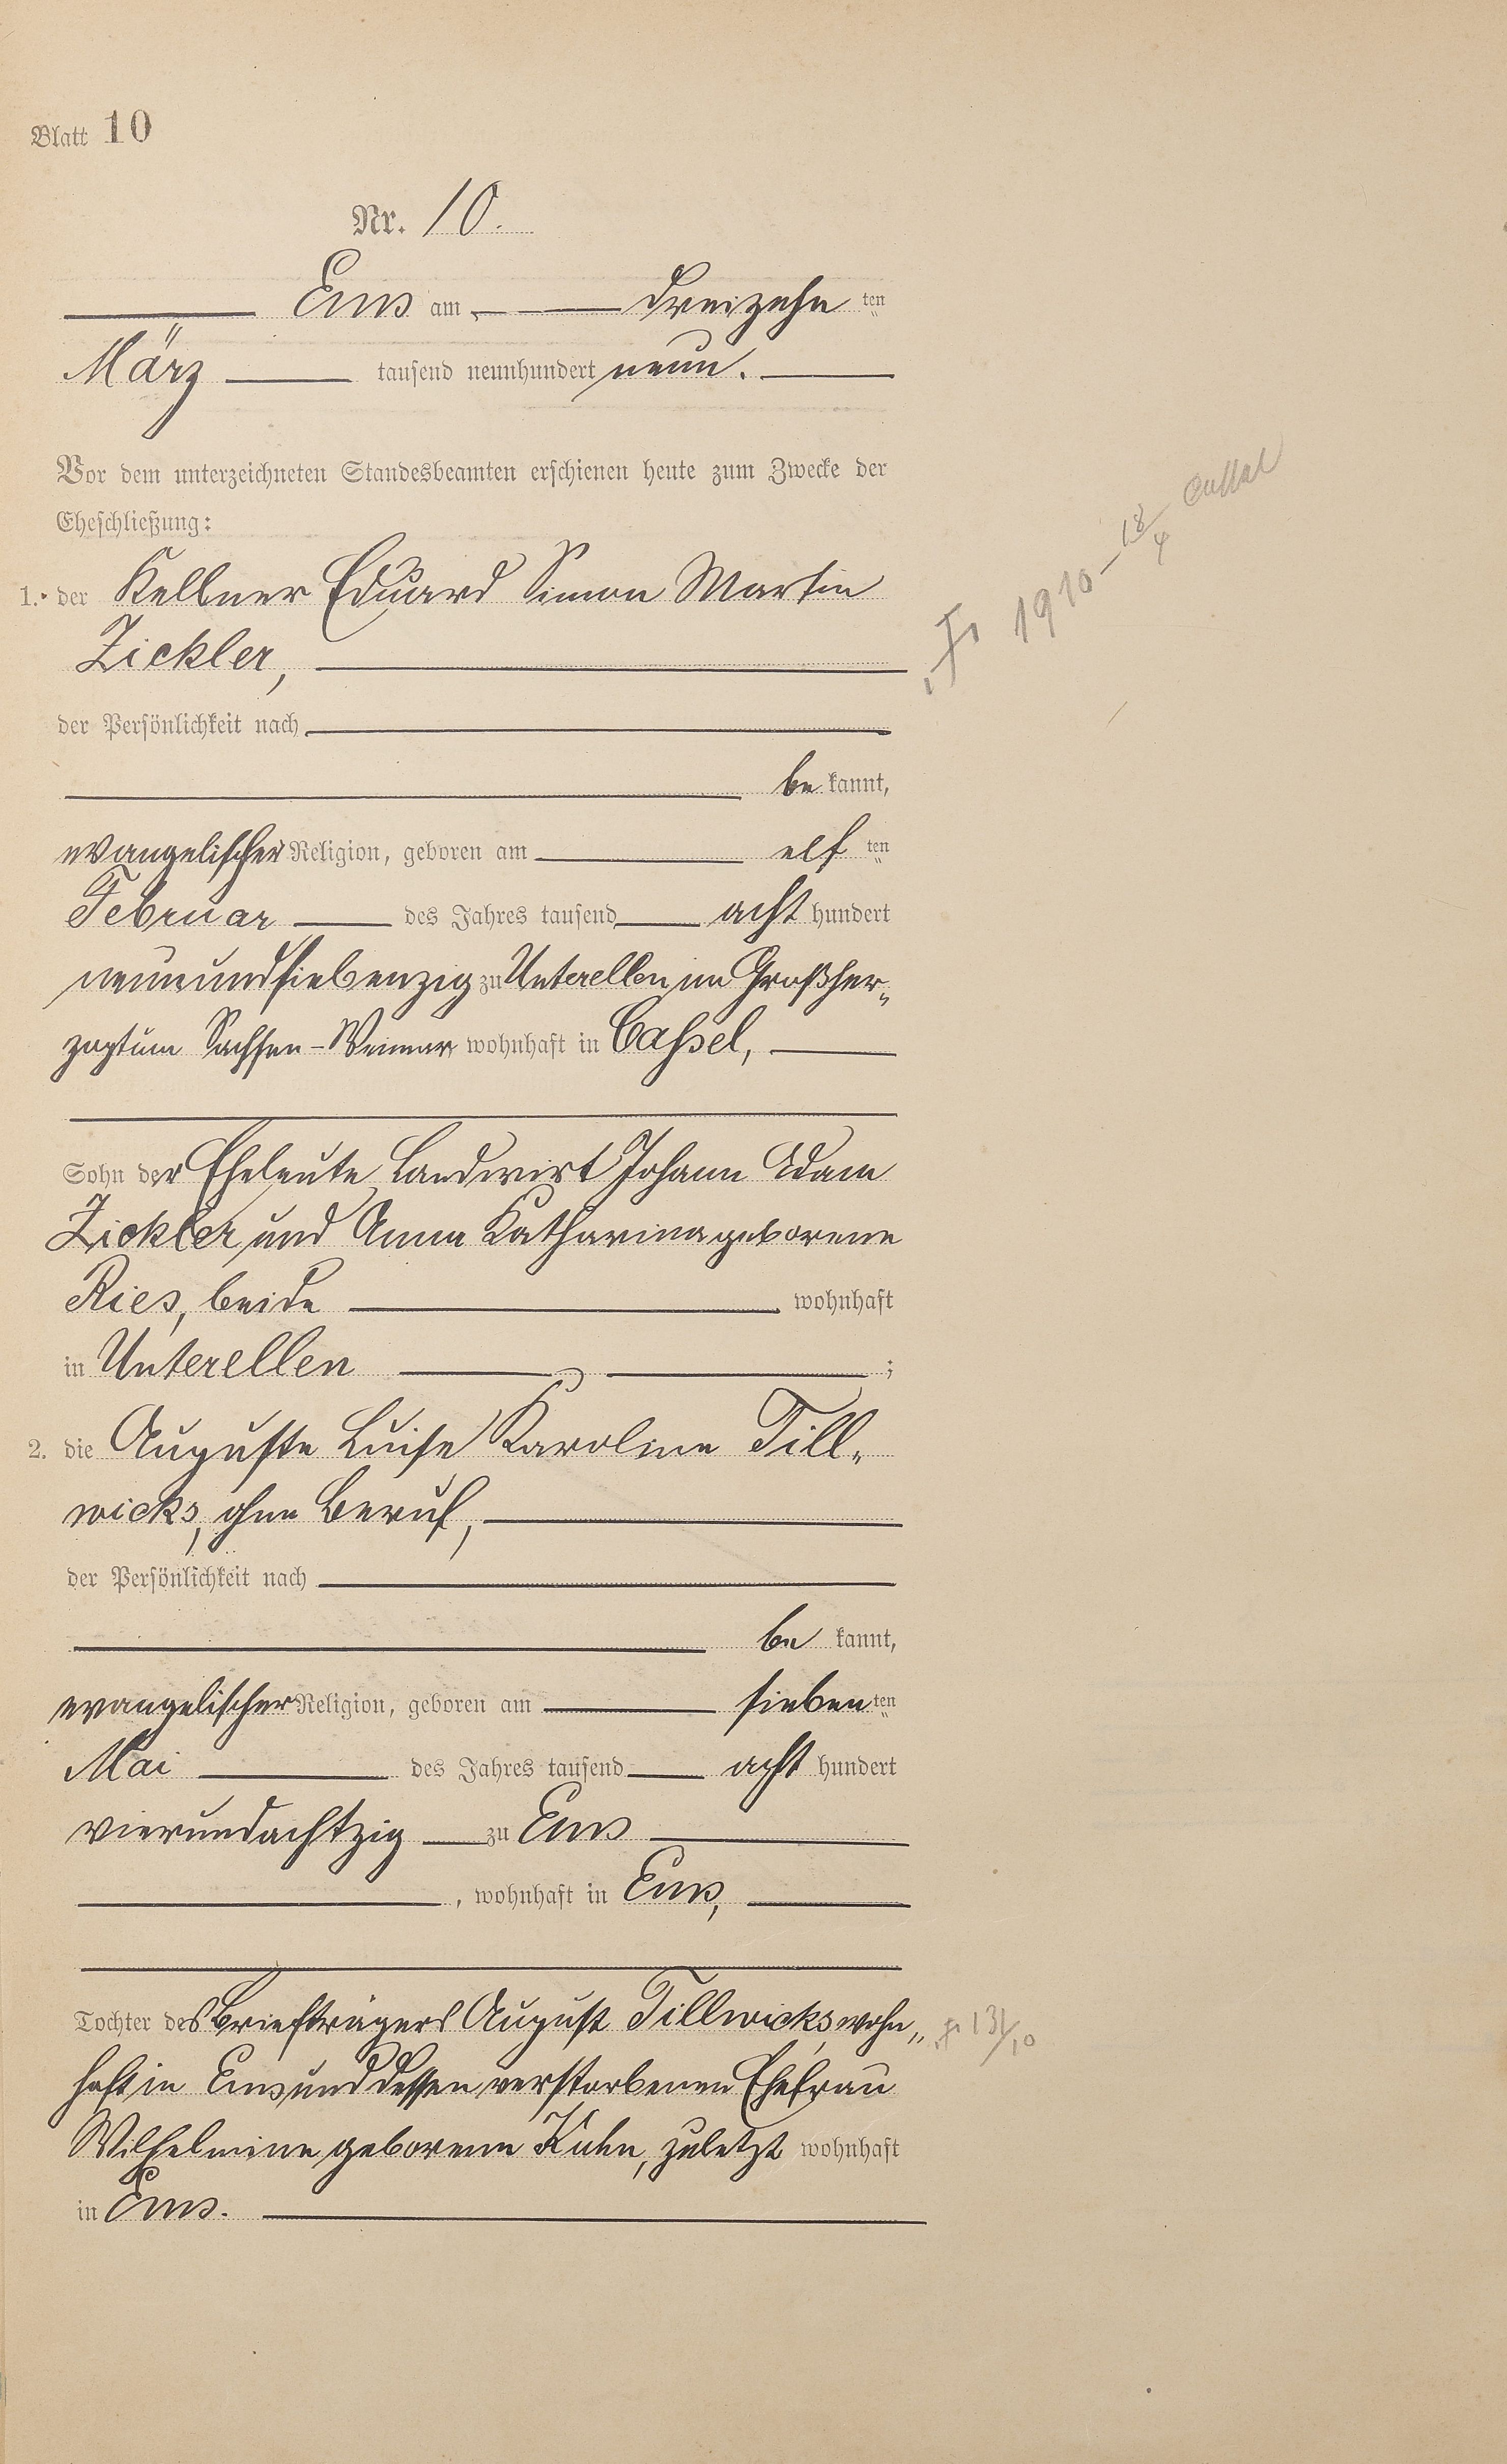 Blatt 10
Nr. 10.
Ems am dreizehn ten
März tausend neunhundert neun.
Vor dem unterzeichneten Standesbeamten erschienen heute zum Zwecke der
Eheschließung:
1. der Kellner Eduard Simon Martin
Zickler,
der Persönlichkeit nach
be kannt,
evangelischer Religion, geboren am elf ten
Februar des Jahres tausend acht hundert
neunundsiebenzig zu Unterellen im Großher„
zogtum Sachsen-Weimar, wohnhaft in Cassel,
Sohn der Eheleute Landwirt Johann Adam
Zickler und Anna Katharina geborene
Ries, beide wohnhaft
in Unterellen ;
2. die Auguste Luise Karoline Till„
wicks, ohne Beruf,
der Persönlichkeit nach
be kannt,
evangelischer Religion, geboren am sieben ten
Mai des Jahres tausend acht hundert
vierundachtzig zu Ems
, wohnhaft in Ems,
Tochter des Briefträgers August Tillwicks, wohn„
haft in Ems und dessen verstorbenen Ehefrau
Wilhelmine geborene Kuhn, zuletzt wohnhaft
in Ems.
1910 - 18/4
13/10